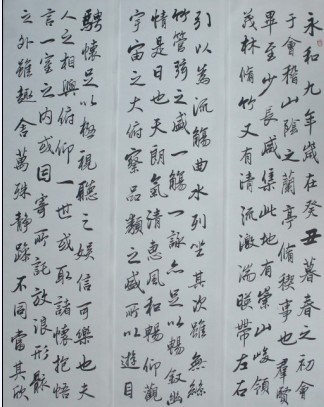 永和九年歲在癸丑暮春之初會
于會稽山陰之蘭亭脩稧事也群賢
畢至少長咸集此地有崇山峻領
茂林脩竹又有清流激湍暎帶左右
引以為流觴曲水列坐其次雖無絲
竹管弦之盛一觴一詠亦足以暢敘幽
情是日也天朗氣清惠風和暢仰觀
宇宙之大俯察品類之盛所以遊目
騁懷足以極視聽之娛信可樂也夫
人之相與俯仰一世或取諸懷抱悟
言一室之內或因寄所託放浪形骸
之外雖趣舍萬殊靜躁不同當其欣